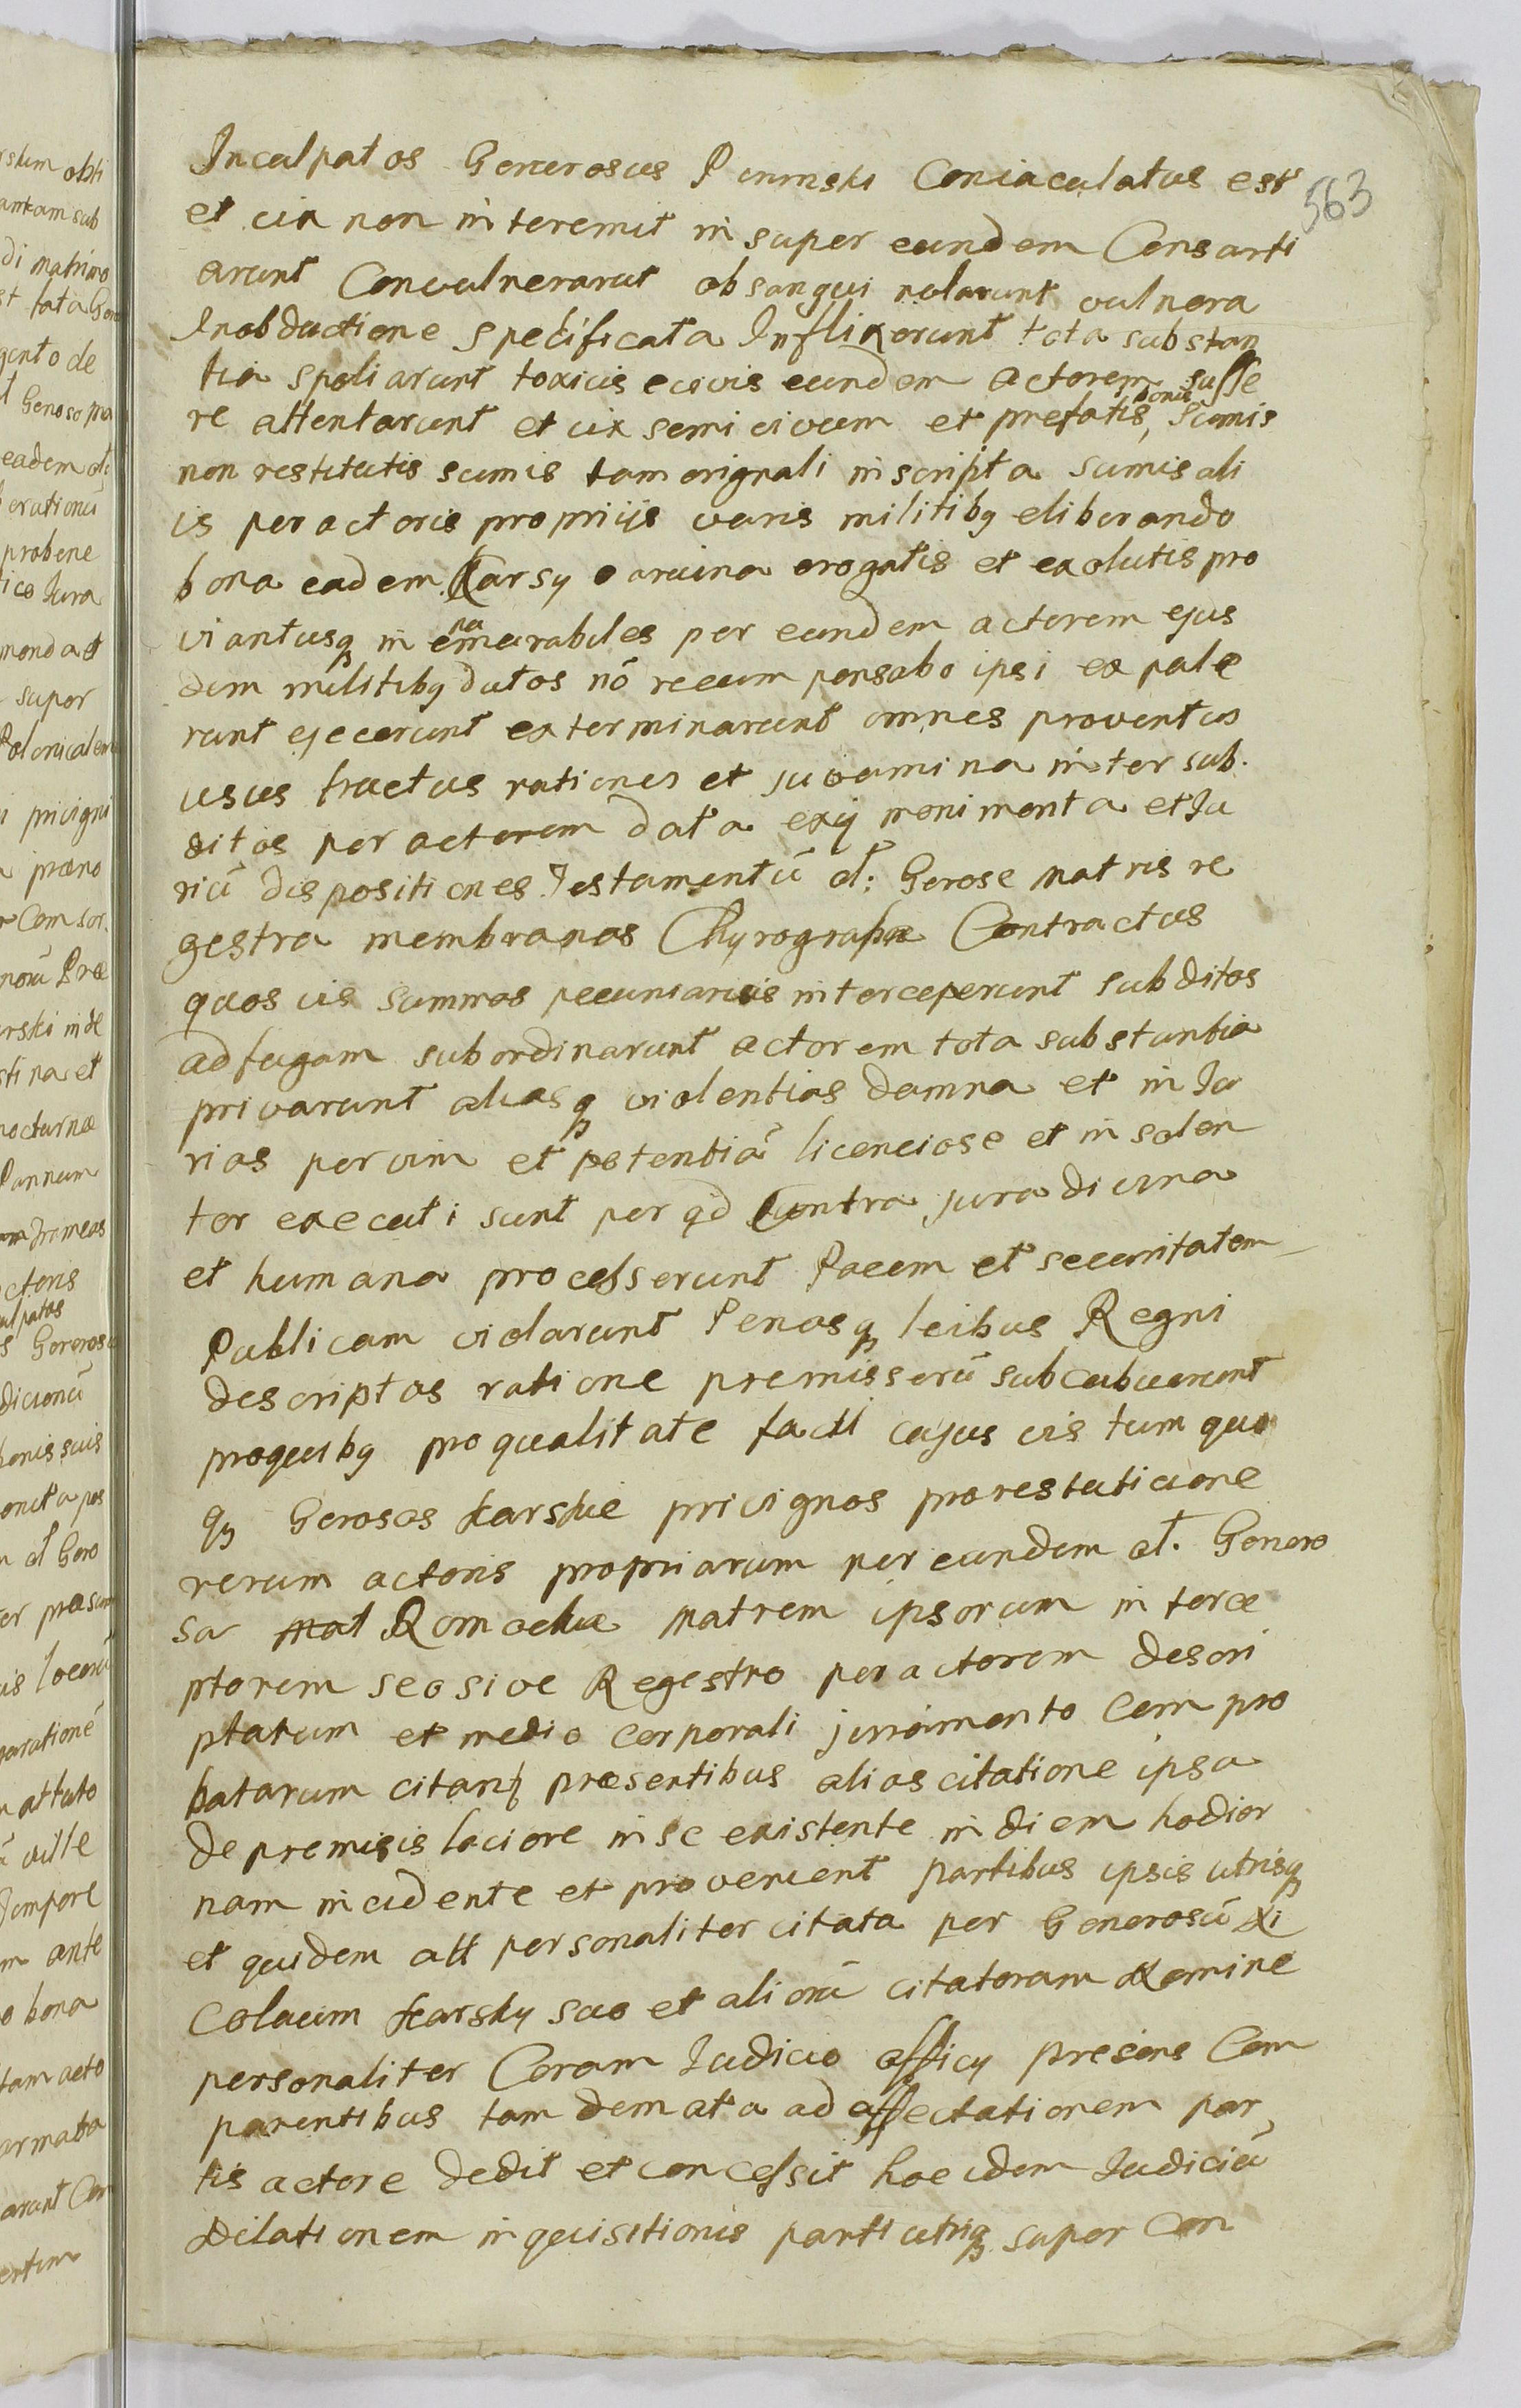 563
Inculpatos Generosus Puninski Coniaculatus est
et vix non interemit insuper eundem Consarti
arunt Convulnerarut obsangui nolarunt vulnera
Inobductione specificata Inflixerunt tota substan
tia spoliarunt toxicis ecivis eundem actorem suffe
re attentarunt et vix semi vivum et prefatis bonis, sumis
non restitutis sumis tam orignali inscripta sumis ali
is per actoris proprijs varis militibq eliberando
bona eadem Karsy oarvina erogatis et exolutis pro
viantusq in enamurabiles per eundem actorem ejus
dem militibq datos nō recum pensabo ipsi ex pule
runt ejecerunt exterminarunt omnes proventus
usus fructus rationes et juvamina inter sub.
ditos per actorem data exij monimenta et Ju
riū dispositiones Testamentū ol: Gerose Matris re
gestra membranas Chyrographa Contractus
quos vis summas pecuniarias interceperunt subditos
ad fugam subordinarunt actorem tota substantia
privarunt aliasq violentias damna et in Ju
rias per vim et potentiā licenciose et insolen
ter executi sunt per qd Contra jura divina
et humana processerunt Pacem et securitatem
Publicam violarunt Penasq leibus Regni
descriptas ratione premissorū subcubuerunt
proquibq pro qualitate facti cujus vis tum quo
qq Gerosos Karskie privignos pro restitutione
rerum actoris propriarum per eundem ol. Genero
sa Mat Romoclia Matrem ipsorum interce
ptorem seosive Regestro per actorem descri
ptarum et medio corporali juramento Com pro
batarum citanq praesentibus alias citatione ipsa
de premisis laciore in se existente in diem hodier
nam incidente et provenient partibus ipsis utrisq
et quidem act personaliter citata per Generosū Ni
Colaum Karsky suo et aliorū citatorum Nomine
personaliter Coram Judicio officy presens Com
parentibus tam demata ad affectationem par
tis actore dedit et concessit hoc idem Judiciū
Dilationem inquisitionis parti utriq super Con